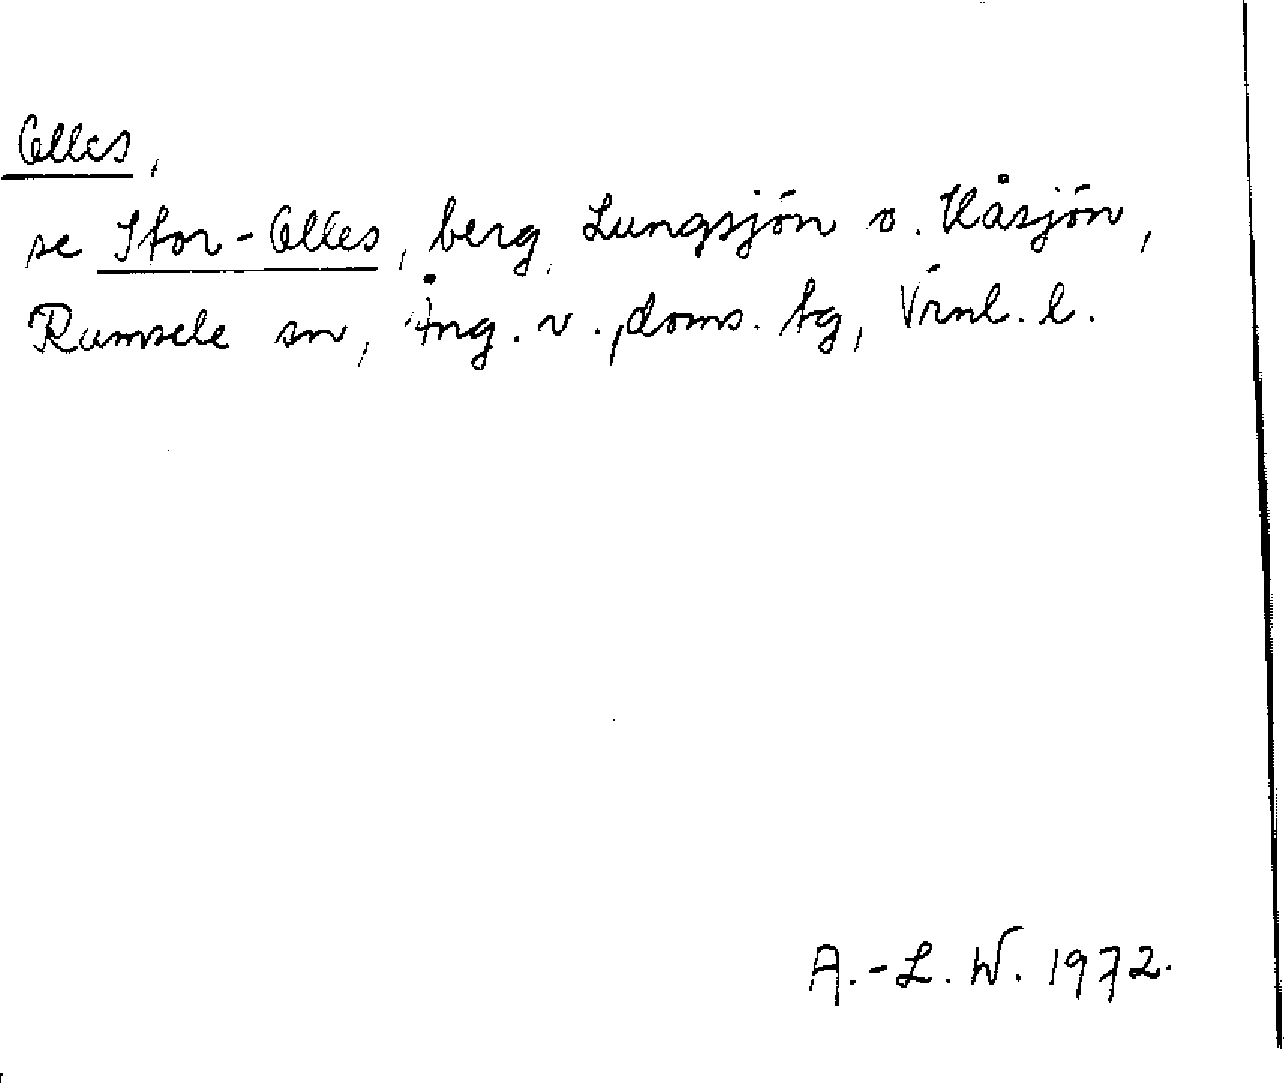 Elles,
se Stor-Elles, berg, Lungsjön o. Kåsjön,
Ramsele sn, Ång. v. doms. tg, Vrnl. l.
A.-L. W. 1972.